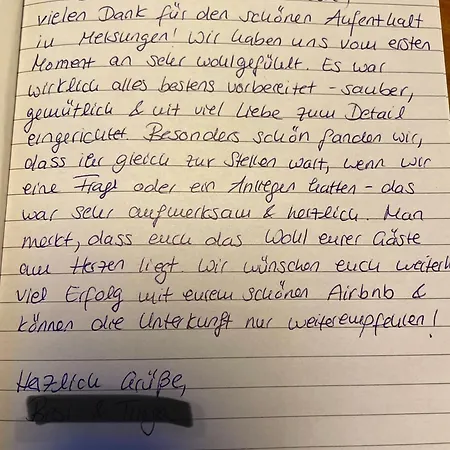 vielen Dank für den schönen Aufenthalt
in Melsungen! Wir haben uns vom ersten
Moment an sehr wohlgefühlt. Es war
wirklich alles bestens vorbereitet - sauber,
gemütlich & mit viel Liebe zum Detail
eingerichtet. Besonders schön fanden wir,
dass ihr gleich zur Stellen wart, wenn wir
eine Frage oder ein Anliegen hatten - das
war sehr aufmerksam & herzlich. Man
merkt, dass euch das Wohl eurer Gäste
am Herzen liegt. Wir wünschen euch weiterh
viel Erfolg mit eurem schönen Airbnb &
können die Unterkunft nur weiterempfehlen!
Herzlich Grüße,